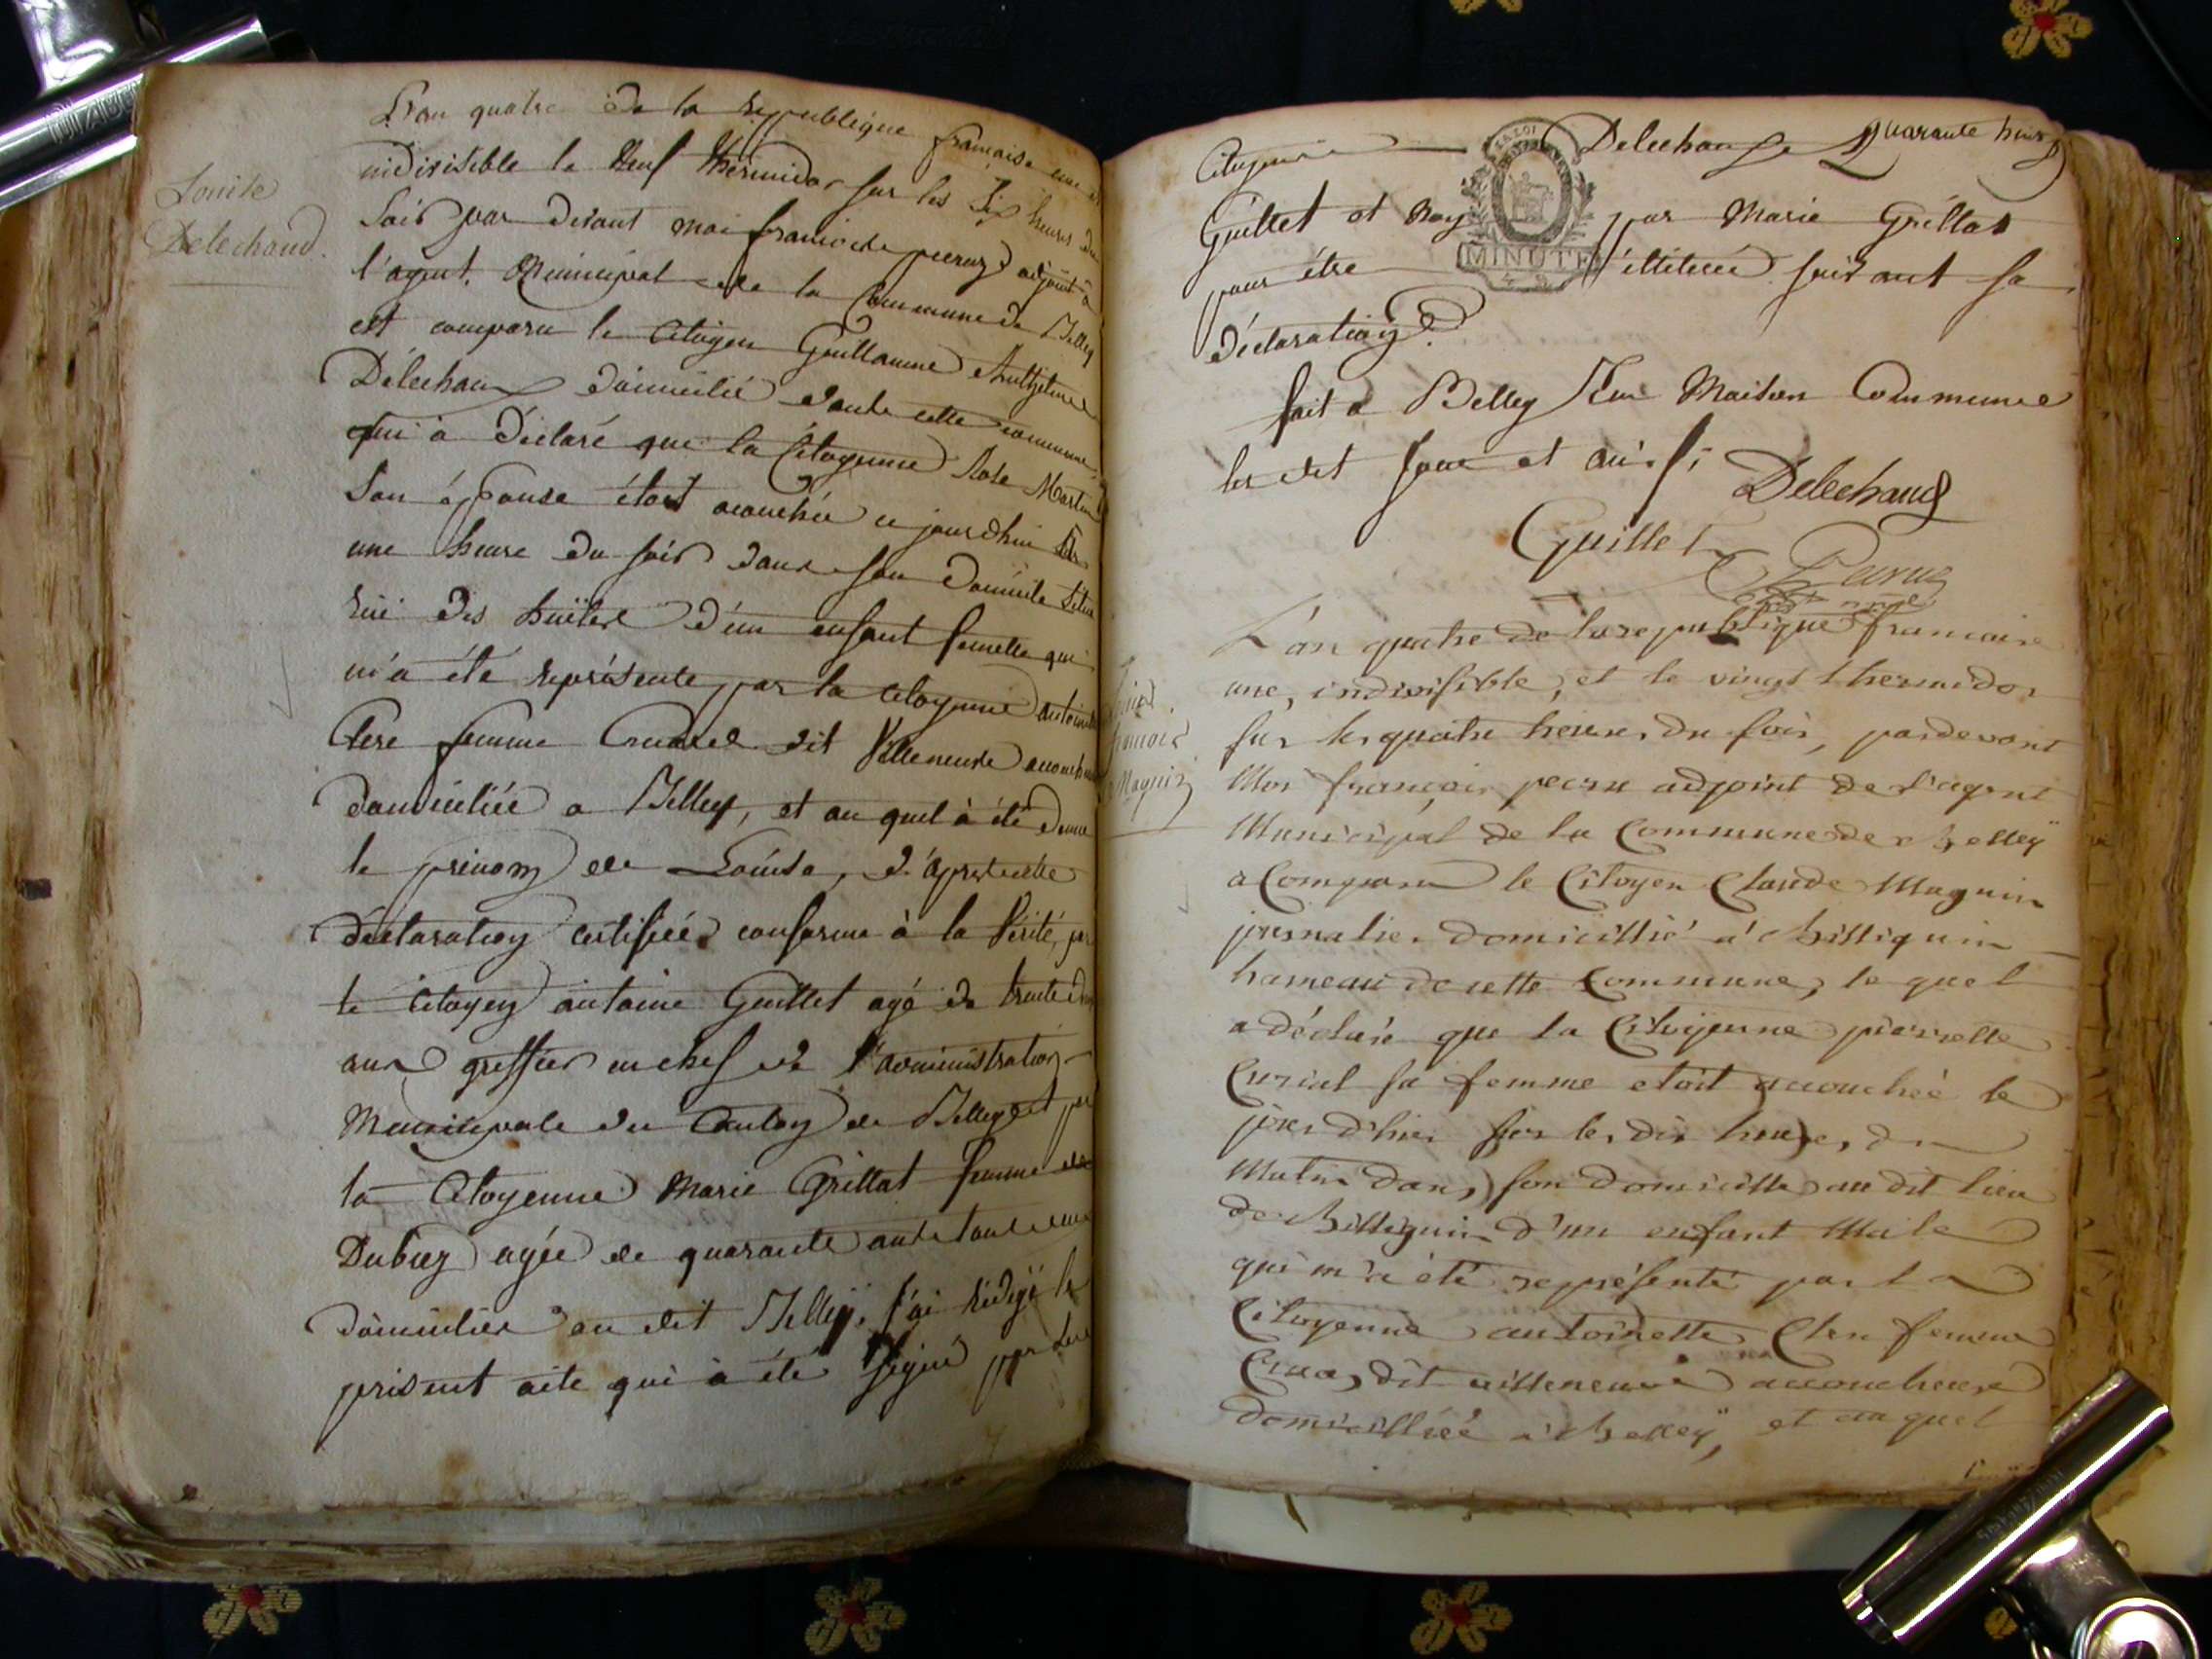 Louise
Delechaud.
L'an quatre de la republique francaise une et
indivisible le Neuf thermidor sur les six heures du
soir par devant moi francois peruz adjoint à
l'agent Municipal de la Commune de Belley
est comparu le Citoyen Guillaume Anthelme
Délechaux domicilié dans cette commune,
qui à déclaré que la Citoyenne Rose Martin
son épouse étoit acouchée ce jourdhui sur
une heure du soir dans son domicile situé
rüe des d'un enfant femelle qui
m'a été représenté par la citoyenne antoinette
Clere femme Cruaz dit Villeneuve acoucheuse
domiciliée a Belley, et au quel à été donné
le prénom de Louise, d'après cette
déclaration certifiée conforme à la Vérité, par
le Citoyen antoine Guillet agé de trente
ans greffier en chef de l'administration
Municipale du Canton de Belley et par
la Citoyenne Marie Grillat femme de
Dubiez agée de quarante ans tous deux
domiciliés au dit Belley, j'ai rédigé le
présent acte qui à été signé par les
Citoyens Delechaux Quarante huit
Guillet et Moy par Marie Grillat
MINUTE
pour être illitérée suivant sa
déclaration.
fait à Belley Maison Commune
les dit jour et an.
Delechaud
Guillet
Peruz
françois
Maguin
L'an quatre de la republique francaise
une, indivisible, et le vingt thermidor
sur les quatre heures du soir, pardevant
Moi françois peruz adjoint de l'agent
Municipal de la Commune de Belleÿ
a Comparu le Citoyen Claude Maguin
journalier domicillié à Billignin
hameau de cette Commune, le quel
a déclaré que la Citoyenne pierrette
Curial sa femme etoit acouchée le
jour d'hier sur les dix heures du
Matin dans son domicille au dit lieu
de Billignin d'un enfant Male
qui m'a été représenté par la
Citoyenne antoinette Clere femme
Cruaz dit villeneuve acoucheuse
domicilliée à Belleÿ, et au quel